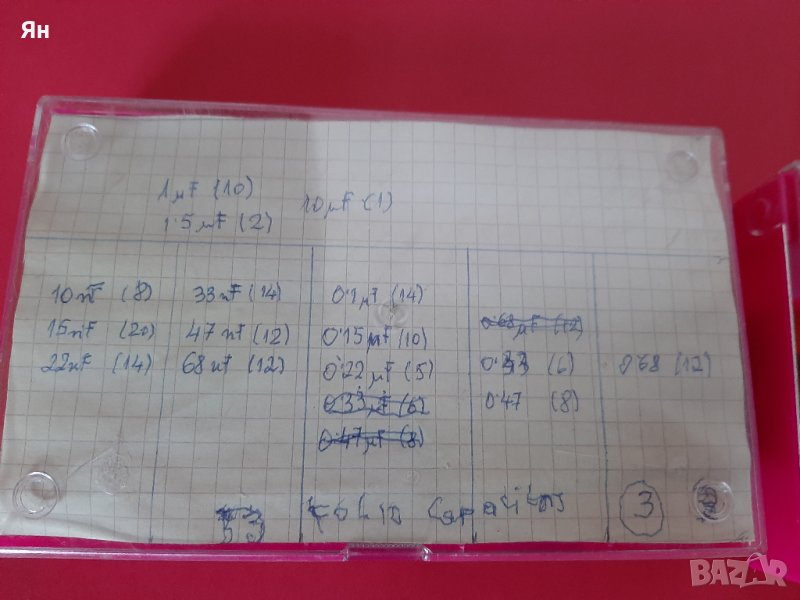 Ян
1μF (10)
10μF (1)
1.5μF (2)
10nF (8)
15nF (20)
22nF (14)
33nF (14)
47nF (12)
68nF (12)
0.1μF (14)
0.15μF (10)
0.22μF (5)
0.33μF (6)
0.47μF (8)
0.68μF (12)
0.33 (6)
0.47 (8)
0.68 (12)
Capacitors
3
BAZAR